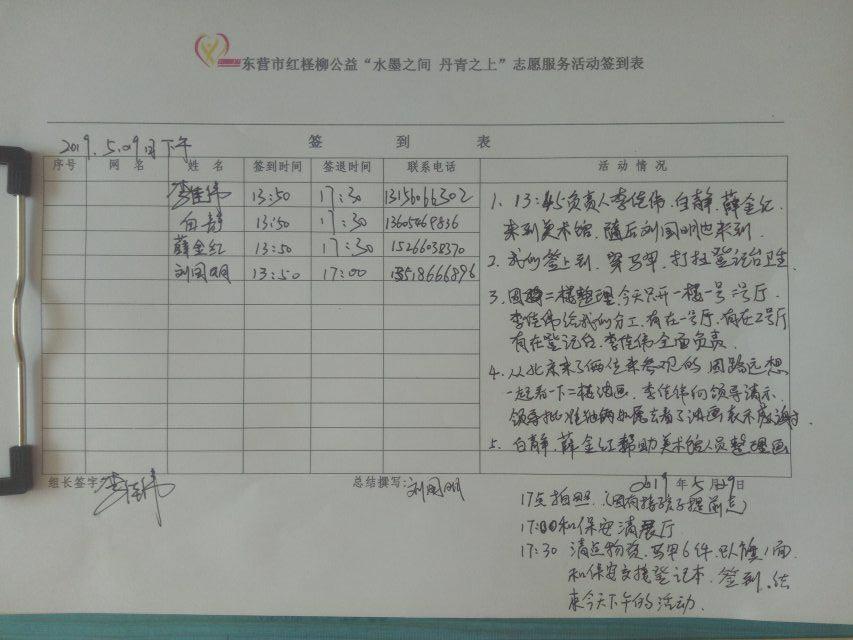 东营市红柽柳公益“水墨之间 丹青之上”志愿服务活动签到表
2019.5.09日下午 签 到 表
序号 网 名 姓 名 签到时间 签退时间 联系电话 活 动 情 况
李佳伟 13:50 17:30 13156066302
白静 13:50 17:30 13605469836
薛金红 13:50 17:30 15266038370
刘国明 13:50 17:00 13518666896
1、13:45负责人李佳伟、白静、薛金红
来到美术馆、随后刘国明也来到
2、我们签上到、穿马甲、打扫登记台卫生
3、因 二楼整理、今天只开一楼一号二号厅
李佳伟给我们分工、有在一号厅、有在2号厅
有在登记台、李佳伟全面负责
4、从北京来了俩位来参观的 因路远想
一起看一下二楼油画、李佳伟向领导请示、
领导批准 看了油画表示感谢
5、白静、薛金红帮助美术馆人员整理画
组长签字：李佳伟 总结撰写：刘国明 2019 年 5 月 9 日
17点拍照、（因有接孩子提前走）
17:00和保安清展厅
17:30 清点物资、马甲6件、队旗1面
和保安交接登记本、签到、结
束今天下午的活动、